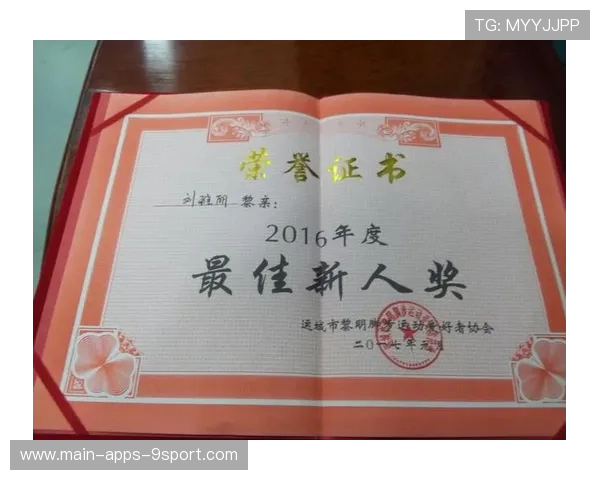 TG: MYYJJPP
荣誉证书
刘雅丽 黎亲:
2016年度
最佳新人奖
运城市黎明脚步运动爱好者协会
二〇一七年元月
www-main-apps-9sport.com